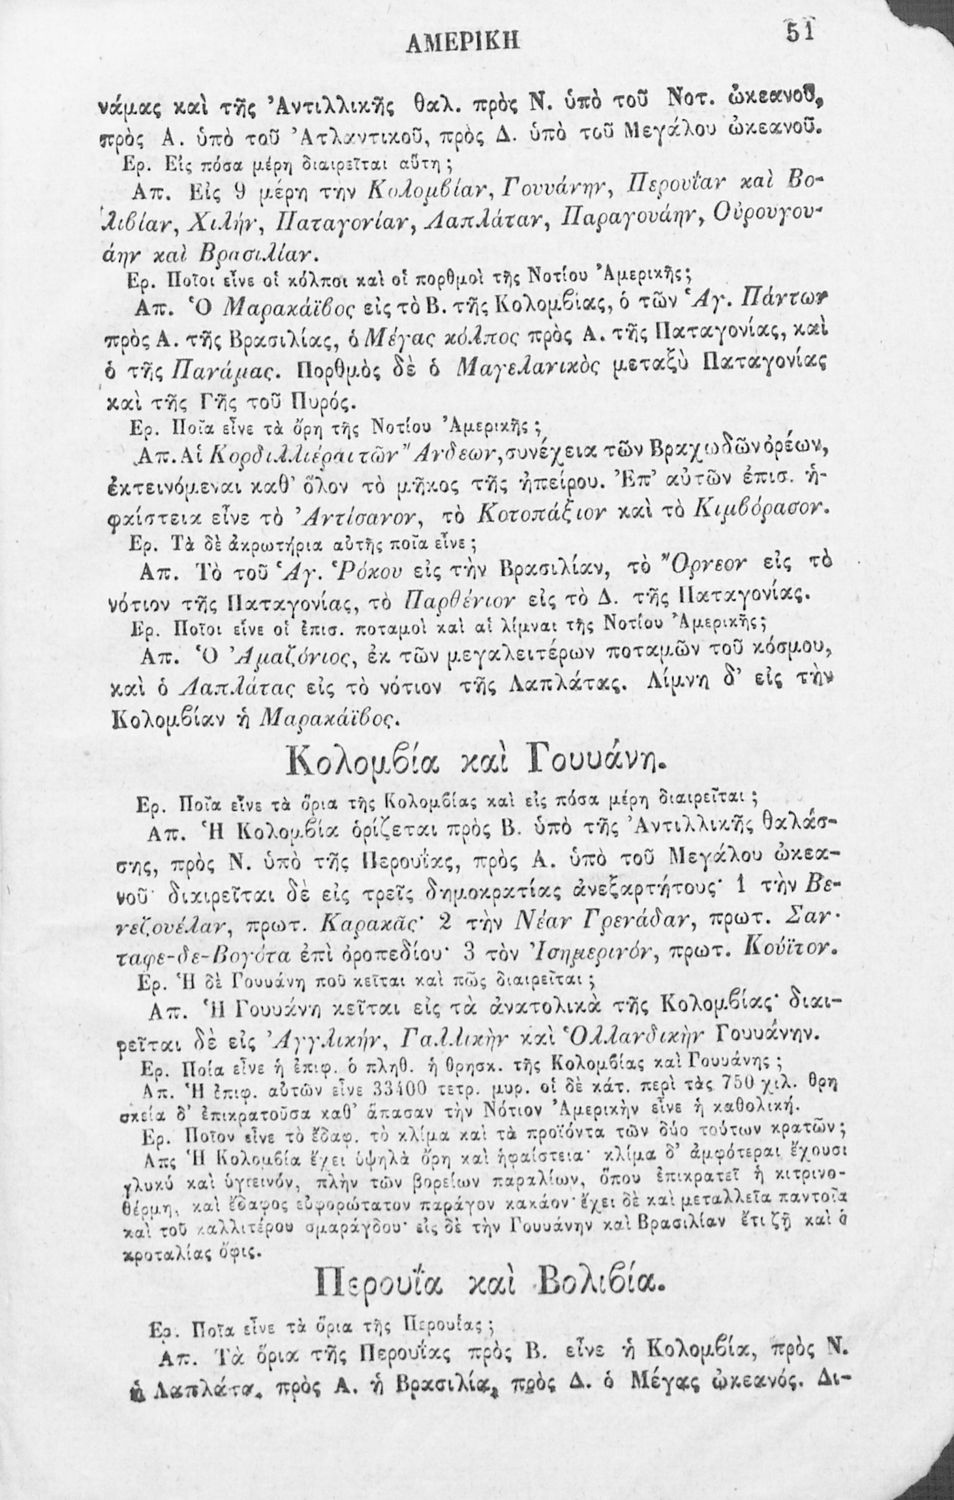 ΑΜΕΡΙΚΗ 51
νάμας καὶ τῆς Ἀντιλλικῆς θαλ. πρὸς Ν. ὑπὸ τοῦ Νοτ. ὠκεανοῦ,
πρὸς Α. ὑπὸ τοῦ Ἀτλαντικοῦ, πρὸς Δ. ὑπὸ τοῦ Μεγάλου ὠκεανοῦ.
Ερ. Εἰς πόσα μέρη διαιρεῖται αὕτη;
Απ. Εἰς 9 μέρη τὴν Κολομβίαν, Γουυάνην, Περουΐαν καὶ Βο-
λιβίαν, Χιλήν, Παταγονίαν, Λαπλάταν, Παραγουάην, Οὐρουγου-
άην καὶ Βρασιλίαν.
Ερ. Ποῖοι εἶνε οἱ κόλποι καὶ οἱ πορθμοὶ τῆς Νοτίου Ἀμερικῆς;
Απ. Ὁ Μαρακάϊβος εἰς τὸ Β. τῆς Κολομβίας, ὁ τῶν Ἁγ. Πάντων
πρὸς Α. τῆς Βρασιλίας, ὁ Μέγας κόλπος πρὸς Α. τῆς Παταγονίας, καὶ
ὁ τῆς Πανάμας. Πορθμὸς δὲ ὁ Μαγελανικὸς μεταξὺ Παταγονίας
καὶ τῆς Γῆς τοῦ Πυρός.
Ερ. Ποῖα εἶνε τὰ ὄρη τῆς Νοτίου Ἀμερικῆς;
Απ. Αἱ Κορδιλλιέραι τῶν Ἄνδεων, συνέχεια τῶν Βραχωδῶν ὀρέων,
ἐκτεινόμεναι καθ' ὅλον τὸ μῆκος τῆς ἠπείρου. Ἐπ' αὐτῶν ἐπισ. ἡ-
φαίστεια εἶνε τὸ Ἀντίσανον, τὸ Κοτοπάξιον καὶ τὸ Κιμβόρασον.
Ερ. Τὰ δὲ ἀκρωτήρια αὐτῆς ποῖα εἶνε;
Απ. Τὸ τοῦ Ἁγ. Ῥόκου εἰς τὴν Βρασιλίαν, τὸ Ὄρνεον εἰς τὸ
νότιον τῆς Παταγονίας, τὸ Παρθένιον εἰς τὸ Δ. τῆς Παταγονίας.
Ερ. Ποῖοι εἶνε οἱ ἐπισ. ποταμοὶ καὶ αἱ λίμναι τῆς Νοτίου Ἀμερικῆς;
Απ. Ὁ Ἀμαζόνιος, ἐκ τῶν μεγαλειτέρων ποταμῶν τοῦ κόσμου,
καὶ ὁ Λαπλάτας εἰς τὸ νότιον τῆς Λαπλάτας. Λίμνη δ' εἰς τὴν
Κολομβίαν ἡ Μαρακάϊβος.
Κολομβία καὶ Γουυάνη.
Ερ. Ποῖα εἶνε τὰ ὅρια τῆς Κολομβίας καὶ εἰς πόσα μέρη διαιρεῖται;
Απ. Ἡ Κολομβία ὁρίζεται πρὸς Β. ὑπὸ τῆς Ἀντιλλικῆς θαλάσ-
σης, πρὸς Ν. ὑπὸ τῆς Περουΐας, πρὸς Α. ὑπὸ τοῦ Μεγάλου ὠκεα-
νοῦ· διαιρεῖται δὲ εἰς τρεῖς δημοκρατίας ἀνεξαρτήτους· 1 τὴν Βε-
νεζουέλαν, πρωτ. Καρακᾶς· 2 τὴν Νέαν Γρενάδαν, πρωτ. Σαν-
ταφε-δε-Βογότα ἐπὶ ὀροπεδίου· 3 τὸν Ἰσημερινόν, πρωτ. Κούϊτον.
Ερ. Ἡ δὲ Γουυάνη ποῦ κεῖται καὶ πῶς διαιρεῖται;
Απ. Ἡ Γουυάνη κεῖται εἰς τὰ ἀνατολικὰ τῆς Κολομβίας· διαι-
ρεῖται δὲ εἰς Ἀγγλικήν, Γαλλικὴν καὶ Ὁλλανδικὴν Γουυάνην.
Ερ. Ποία εἶνε ἡ ἐπιφ. ὁ πληθ. ἡ θρησκ. τῆς Κολομβίας καὶ Γουυάνης;
Απ. Ἡ ἐπιφ. αὐτῶν εἶνε 33400 τετρ. μυρ. οἱ δὲ κάτ. περὶ τὰς 750 χιλ. θρη
σκεία δ' ἐπικρατοῦσα καθ' ἅπασαν τὴν Νότιον Ἀμερικὴν εἶνε ἡ καθολική.
Ερ. Ποῖον εἶνε τὸ ἔδαφ. τὸ κλίμα καὶ τὰ προϊόντα τῶν δύο τούτων κρατῶν;
Απς Ἡ Κολομβία ἔχει ὑψηλὰ ὄρη καὶ ἡφαίστεια· κλίμα δ' ἀμφότεραι ἔχουσι
γλυκὺ καὶ ὑγιεινόν, πλὴν τῶν βορείων παραλίων, ὅπου ἐπικρατεῖ ἡ κιτρινο-
θέρμη, καὶ ἔδαφος εὐφορώτατον παράγον κακάον· ἔχει δὲ καὶ μεταλλεῖα παντοῖα
καὶ τοῦ καλλιτέρου σμαράγδου· εἰς δὲ τὴν Γουυάνην καὶ Βρασιλίαν ἔτι ζῇ καὶ ὁ
κροταλίας ὄφις.
Περουΐα καὶ Βολιβία.
Ερ. Ποῖα εἶνε τὰ ὅρια τῆς Περουΐας;
Απ. Τὰ ὅρια τῆς Περουΐας πρὸς Β. εἶνε ἡ Κολομβία, πρὸς Ν.
ἡ Λαπλάτα, πρὸς Α. ἡ Βρασιλία, πρὸς Δ. ὁ Μέγας ὠκεανός. Δι-